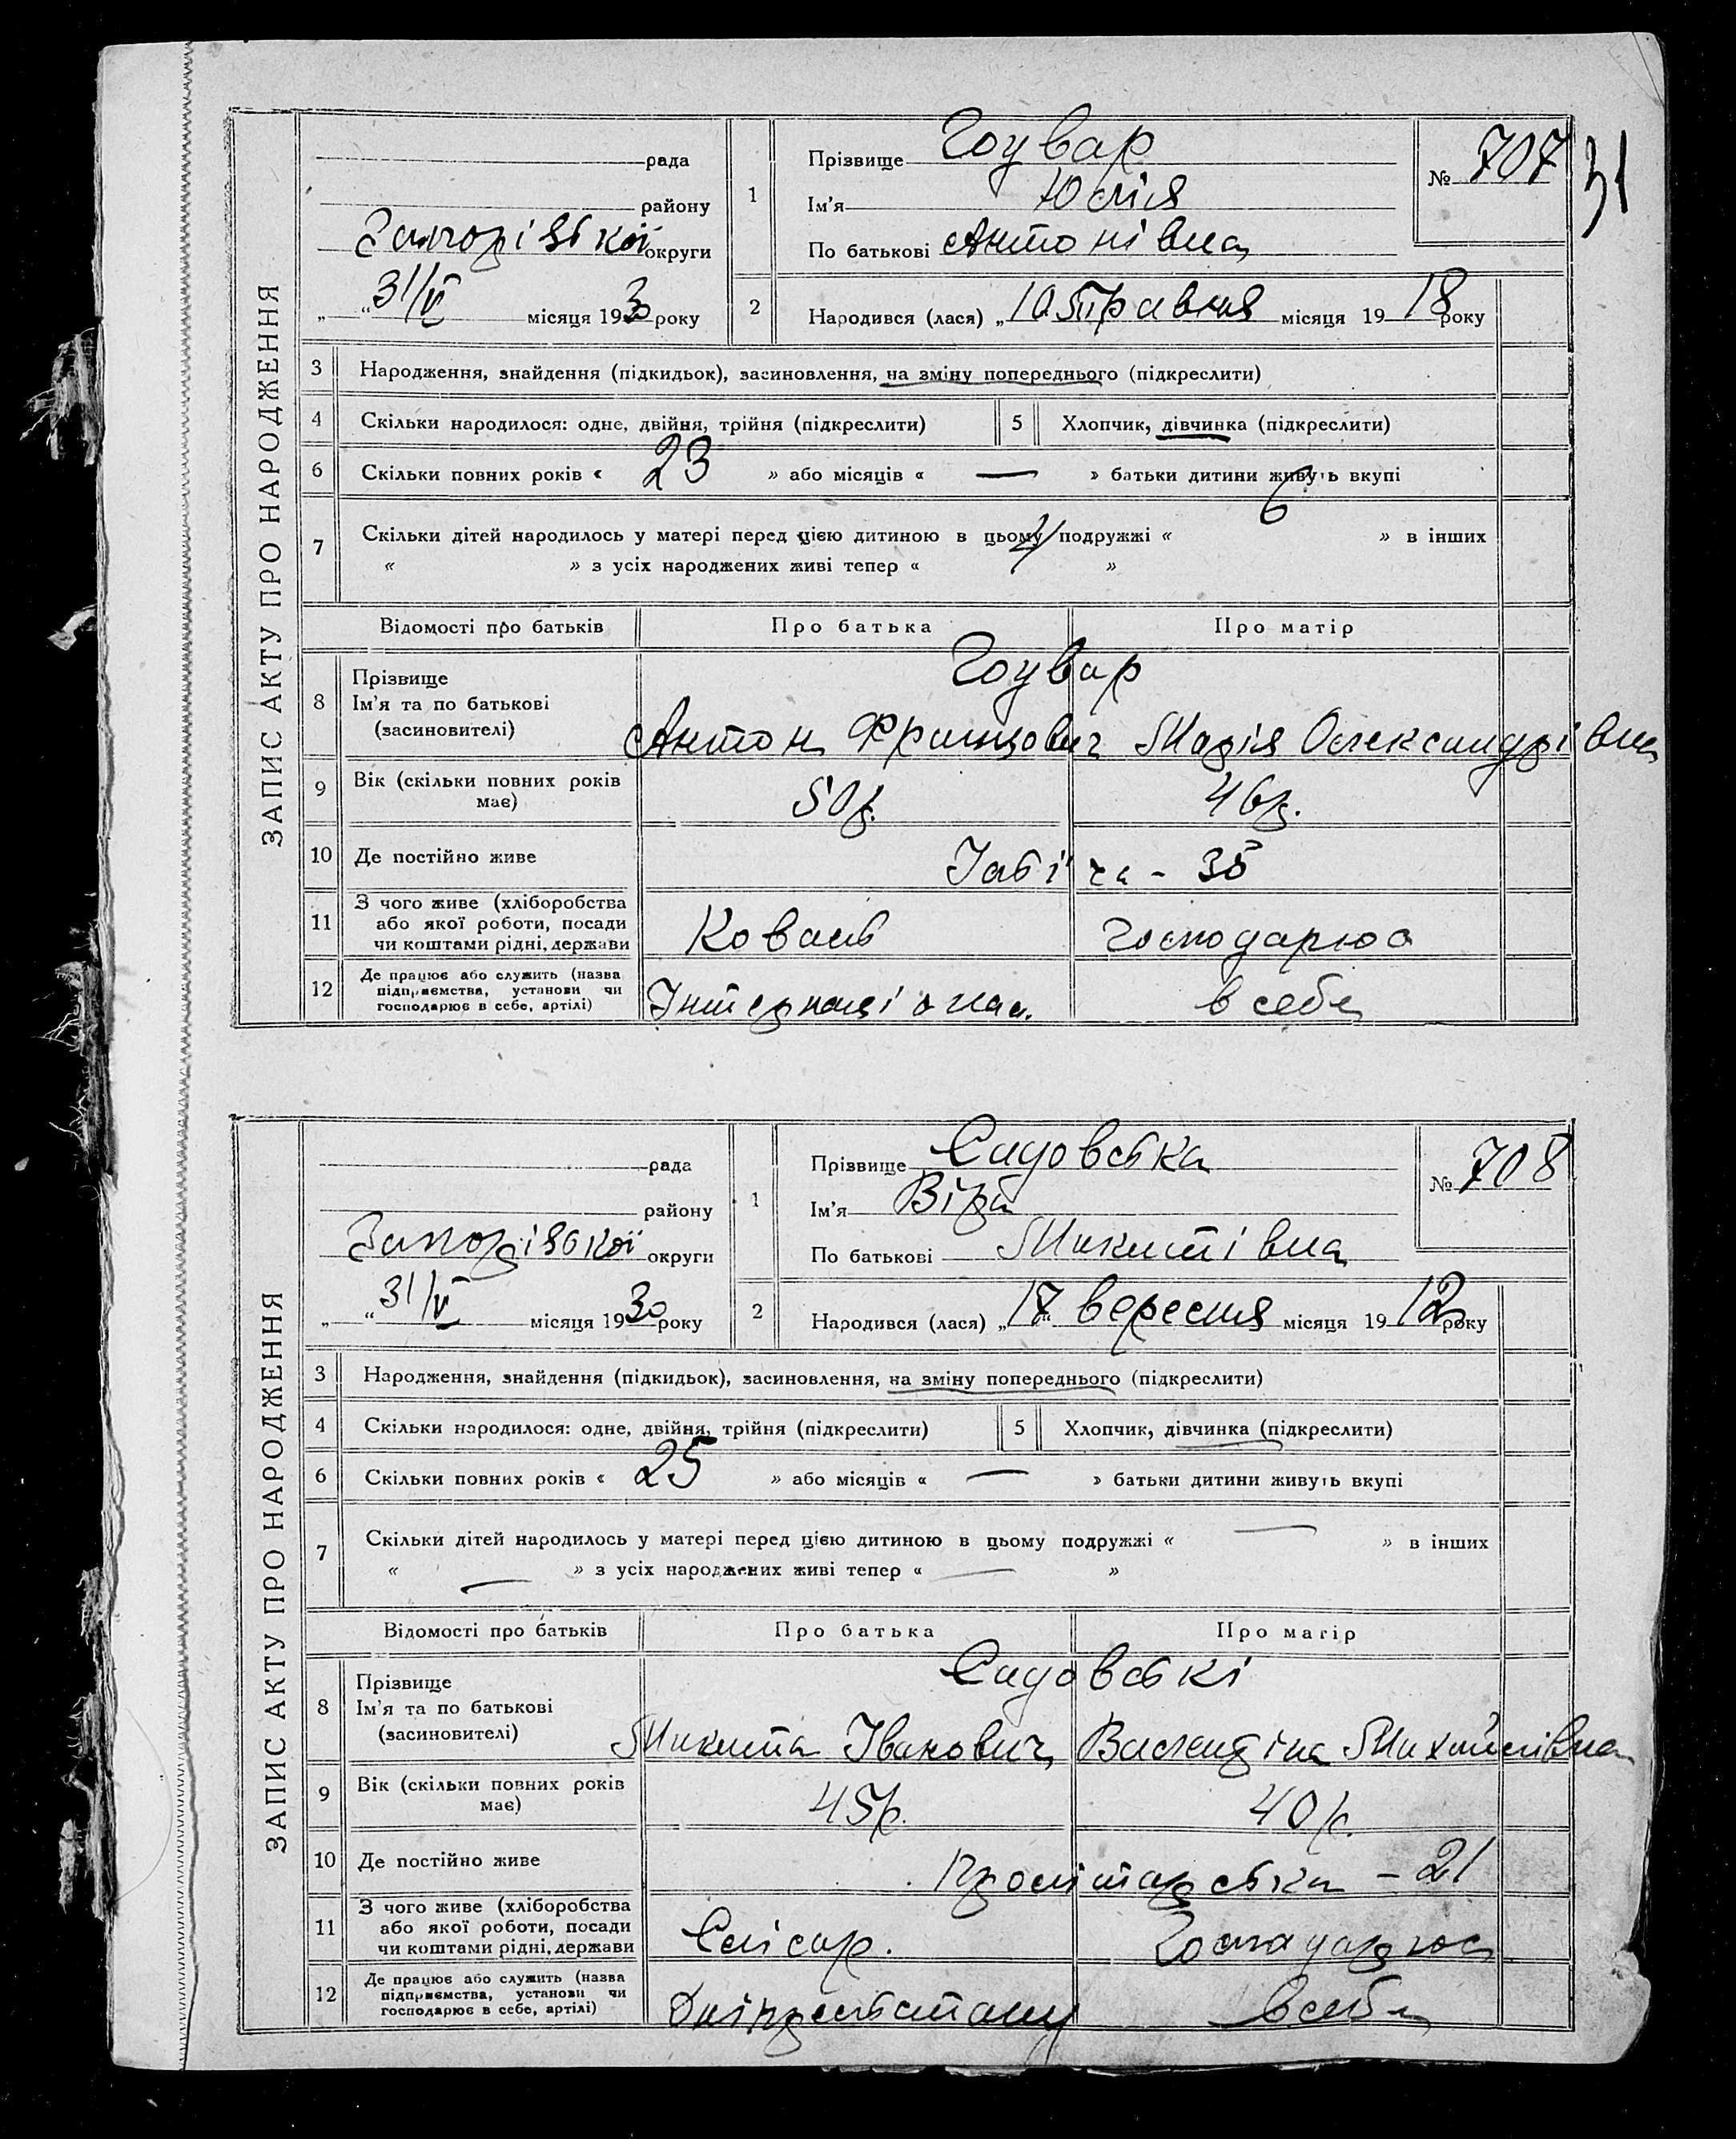 31
ЗАПИС АКТУ ПРО НАРОДЖЕННЯ
рада
району
Запорізької округи
„ “ 31/V місяця 1930 року
1 Прізвище Гоувар
Ім'я Юлія
По батькові Антонівна
№ 707
2 Народився (лася) „ травня місяця 1918 року
3 Народження, знайдення (підкидьок), засиновлення, на зміну попереднього (підкреслити)
4 Скільки народилося: одне, двійня, трійня (підкреслити) 5 Хлопчик, дівчинка (підкреслити)
6 Скільки повних років « 23 » або місяців « — » батьки дитини живуть вкупі
7 Скільки дітей народилось у матері перед цією дитиною в цьому подружжі « 6 » в інших
« » з усіх народжених живі тепер « »
Відомості про батьків Про батька Про матір
8 Прізвище Гоувар
Ім'я та по батькові
(засиновителі) Антон Францович Марія Олександрівна
9 Вік (скільки повних років має) 50 р. 46 р.
10 Де постійно живе 35
11 З чого живе (хліборобства
або якої роботи, посади Коваль Господарює
чи коштами рідні, держави
12 Де працює або служить (назва
підприємства, установи чи
господарює в себе, артілі) Інтернаціонал. в себе
ЗАПИС АКТУ ПРО НАРОДЖЕННЯ
рада
району
Запорізької округи
„ “ 31/V місяця 1930 року
1 Прізвище Садовська
Ім'я Віра
По батькові Микитівна
№ 708
2 Народився (лася) „17“ вересня місяця 1912 року
3 Народження, знайдення (підкидьок), засиновлення, на зміну попереднього (підкреслити)
4 Скільки народилося: одне, двійня, трійня (підкреслити) 5 Хлопчик, дівчинка (підкреслити)
6 Скільки повних років « 25 » або місяців « — » батьки дитини живуть вкупі
7 Скільки дітей народилось у матері перед цією дитиною в цьому подружжі « — » в інших
« — » з усіх народжених живі тепер « — »
Відомості про батьків Про батька Про матір
8 Прізвище Садовські
Ім'я та по батькові
(засиновителі) Микита Іванович Валентіна Михайлівна
9 Вік (скільки повних років має) 45 р. 40 р.
10 Де постійно живе Пролітарська - 21
11 З чого живе (хліборобства
або якої роботи, посади Слісар. Господарює
чи коштами рідні, держави
12 Де працює або служить (назва
підприємства, установи чи
господарює в себе, артілі) Дніпрельстану в себе